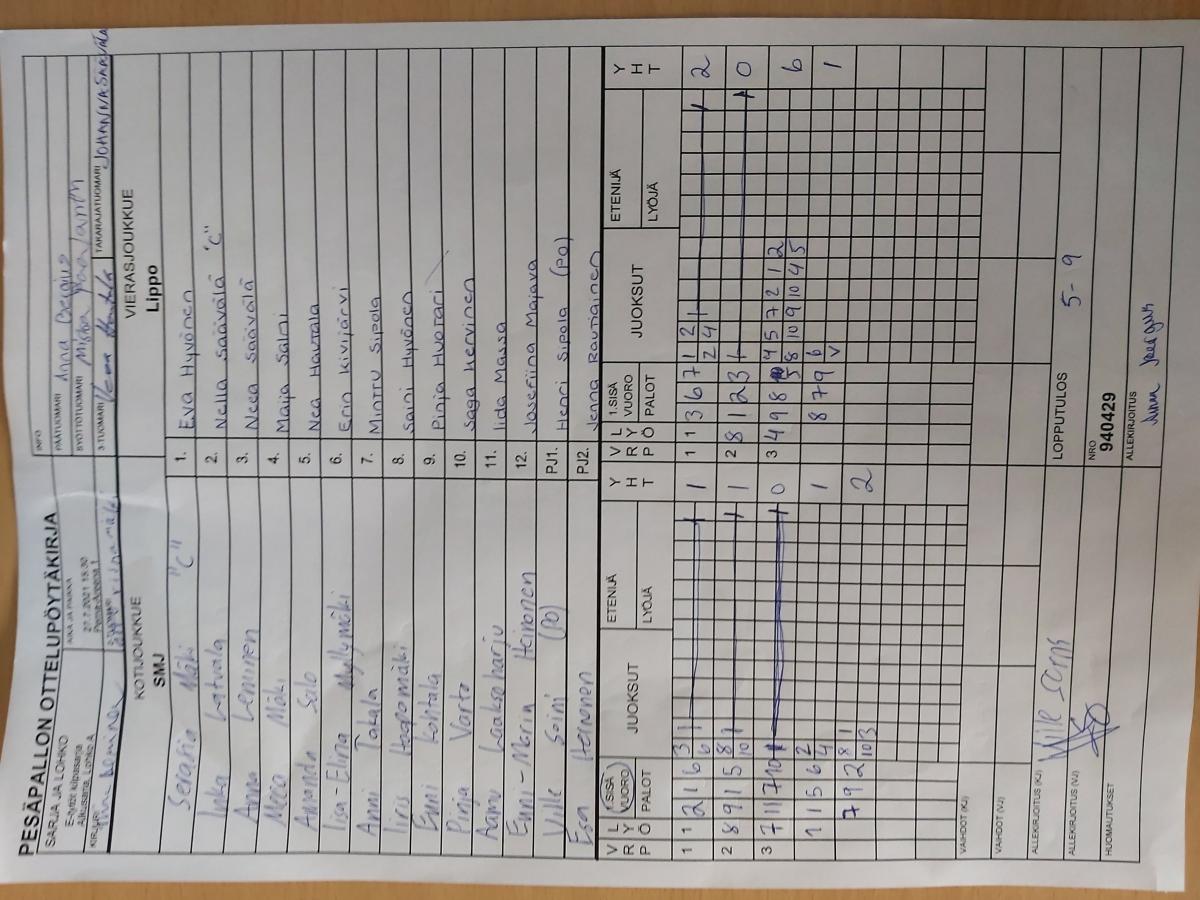 PESÄPALLON OTTELUPÖYTÄKIRJA
SARJA JA LOHKO
E-tytöt kilpasarja
Alkusarja, Lohko A
KIRJURI
AIKA JA PAIKKA
27.7.2021 18:30
INFO
PÄÄTUOMARI Anna Bergius
SYÖTTÖTUOMARI Miska
3-TUOMARI
TAKARAJATUOMARI JOHANNA SAAVALA
KOTIJOUKKUE
SMJ
VIERASJOUKKUE
Lippo
Serafia Mäki "C"
1. Eva Hyvönen
Inka Latvala
2. Nella Säävälä "C"
Anna Leminen
3. Neea Säävälä
Neea Mäki
4. Maija Salmi
Amanda Salo
5. Nea Hautala
Iisa-Elina Myllymäki
6. Erin Kivijärvi
Anni Takala
7. Minttu Sipola
Iiris Haapamäki
8. Saini Hyvönen
Enni Kohtala
9. Pinja Huotari
Pinja Varto
10. Saga Kervinen
Aamu Laaksoharju
11. Iida Massa
Emni-Maria Heinonen
12. Josefiina Majava
Ville Soini (PO)
PJ1. Henri Sipola (PO)
Esa Heinonen
PJ2. Jenna Rautiainen
V R P
L Y Ö
1.SISÄ VUORO
PALOT
JUOKSUT
ETENIJÄ
LYÖJÄ
Y H T
V R P
L Y Ö
1.SISÄ VUORO
PALOT
JUOKSUT
ETENIJÄ
LYÖJÄ
Y H T
1 1 2 1 6 3 1
6
1
1 1 3 6 7 1 2 1
2 4
2
2 8 9 1 5 8 1
10
1
2 8 1 2 3
0
3 7 11 7 10
0
3 4 9 8 4 5 7 2 1 2
5 8 10 9 10 4 5
6
1 1 5 6 2
4
1
8 7 9 6
V
1
7 9 2 8 1
10 3
2
VAIHDOT (KJ)
VAIHDOT (VJ)
ALLEKIRJOITUS (KJ)
LOPPUTULOS 5-9
ALLEKIRJOITUS (VJ)
NRO
940429
HUOMAUTUKSET
ALLEKIRJOITUS